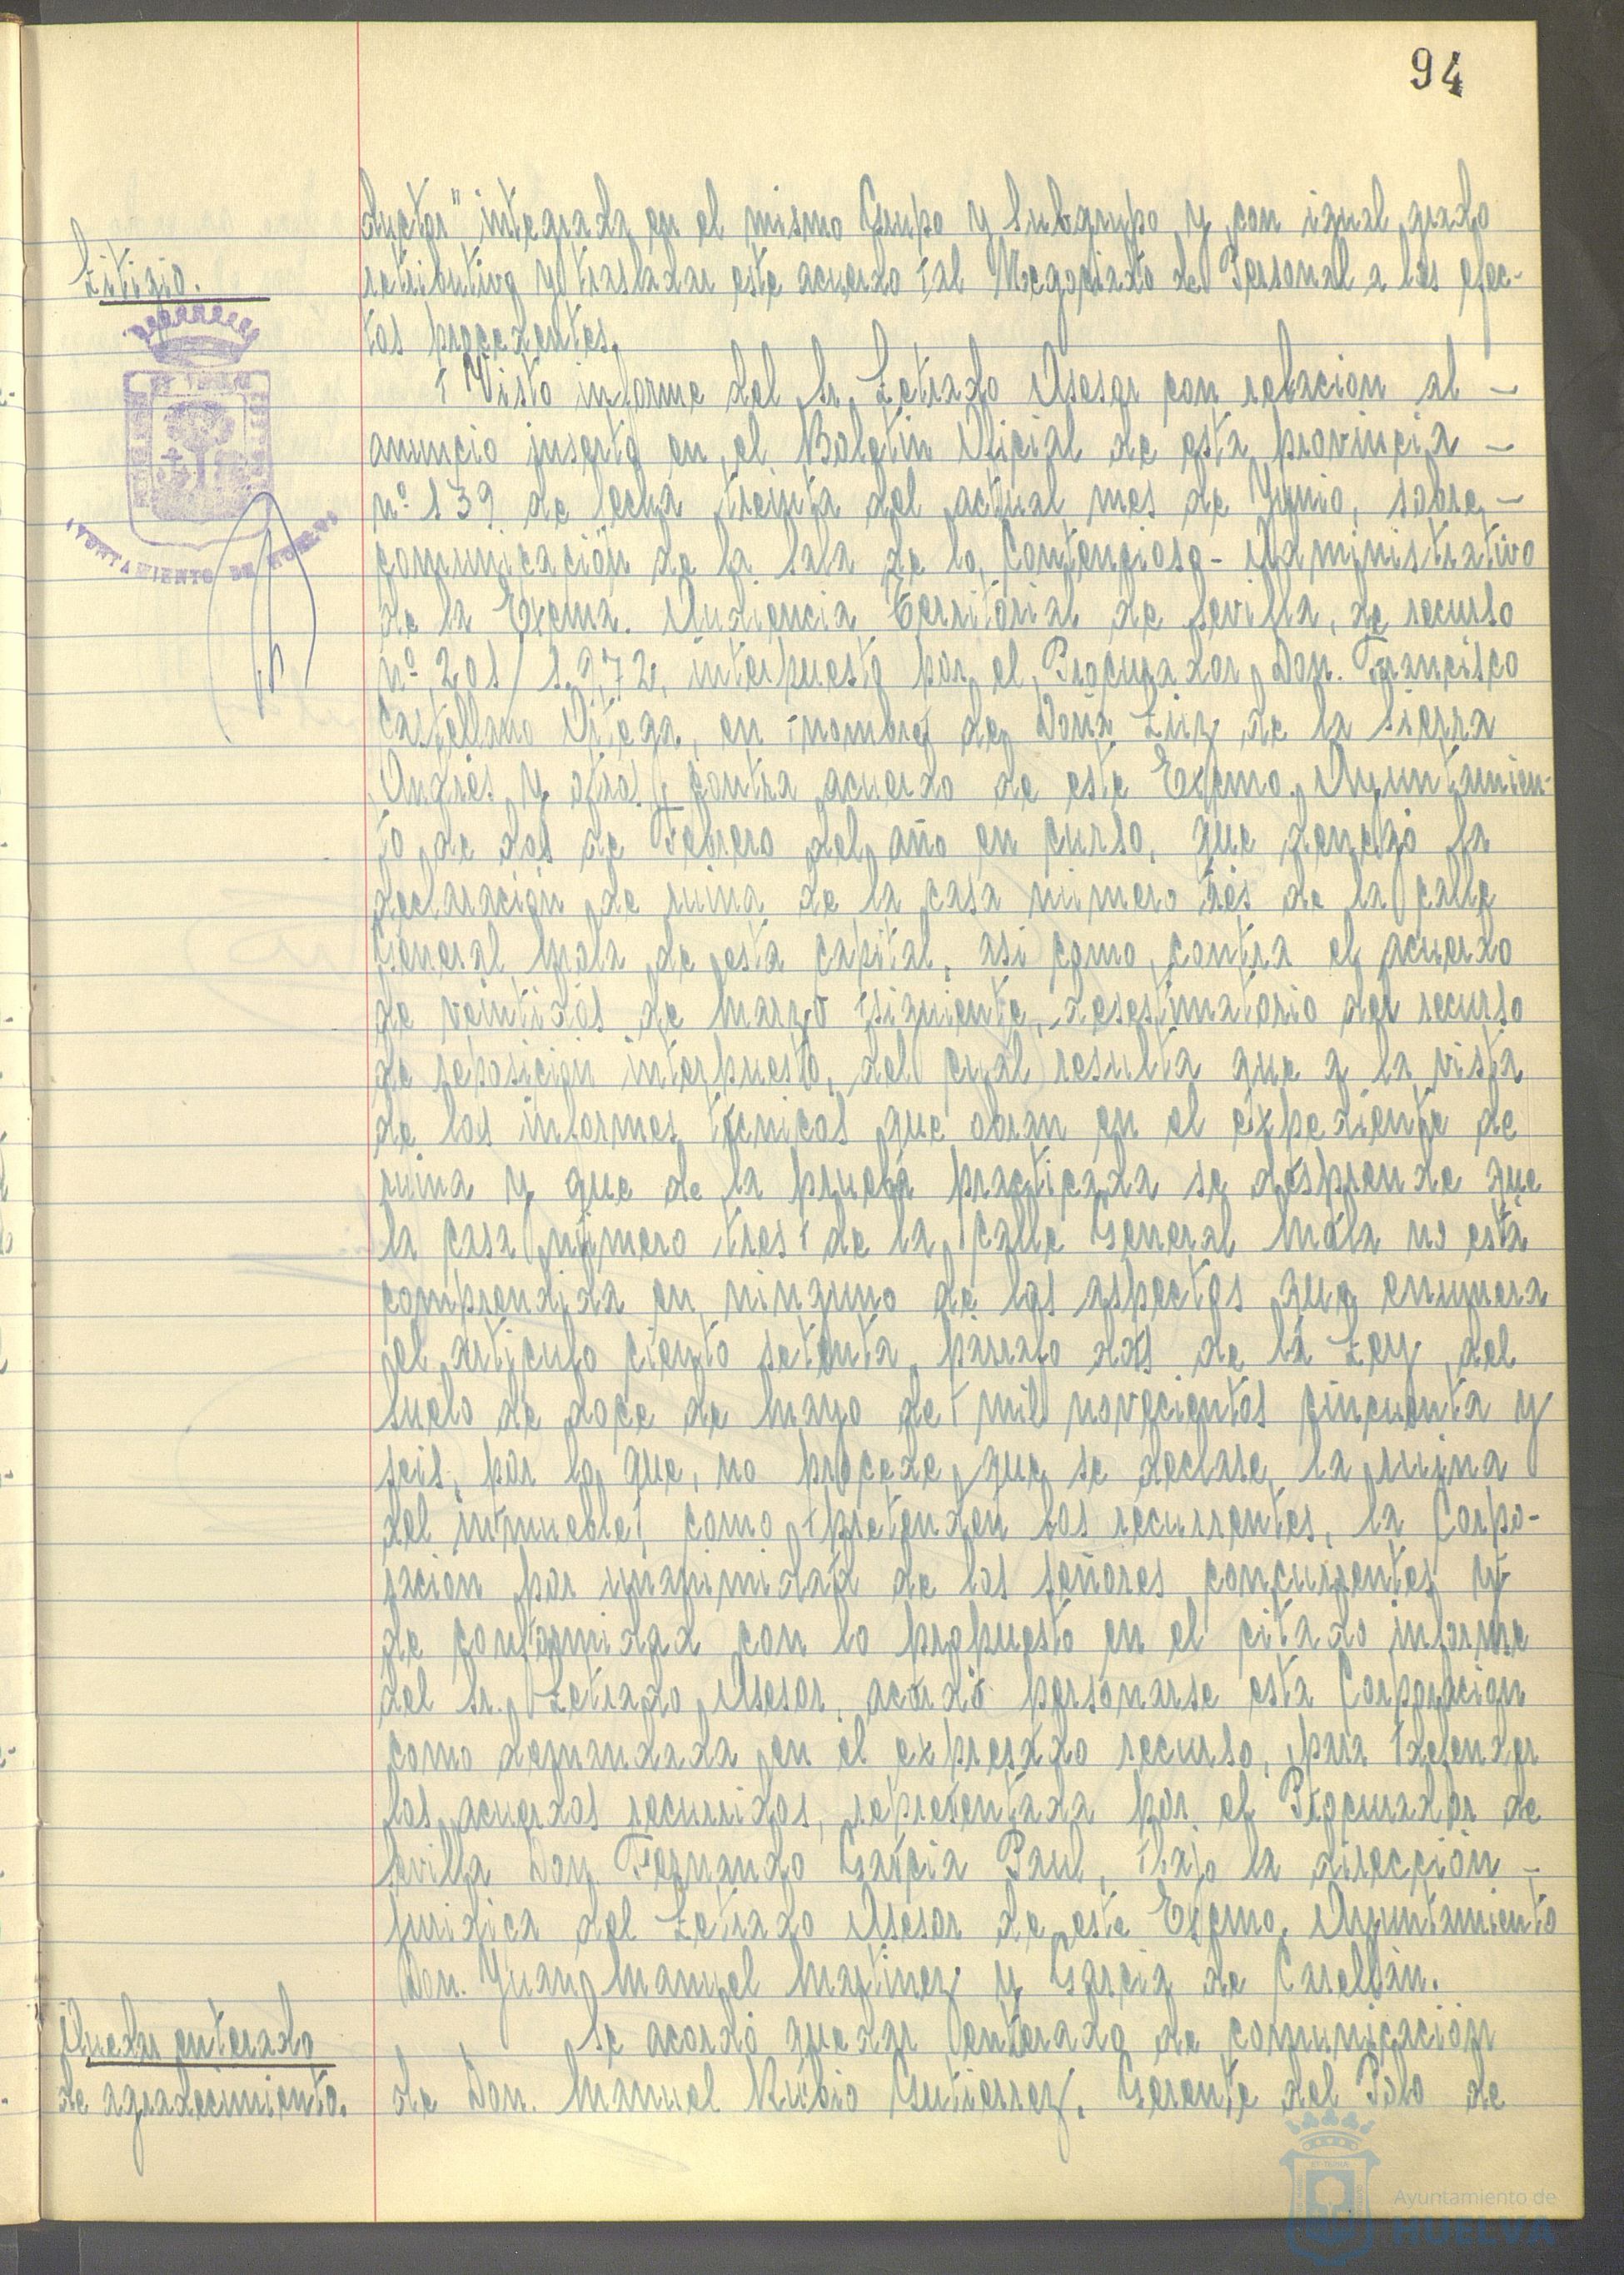 94
ductor" integrada en el mismo Grupo y Subgrupo y con igual grado
Litigio.
retributivo y trasladar este acuerdo al Negociado de Personal a los efec-
tos procedentes.
Visto informe del Sr. Letrado Asesor con relacion al -
anuncio inserto en el Boletin Oficial de esta provincia -
nº 139 de fecha treinta del actual mes de Junio, sobre -
comunicación de la Sala de lo Contencioso-Administrativo
AYUNTAMIENTO DE HUELVA
de la Excma. Audiencia Territorial de Sevilla, de recurso
nº 201/1.972, interpuesto por el Procurador Don. Francisco
Castellano Ortega, en nombre de Doña Luz de la Sierra
Andrés y otros, contra acuerdo de este Excmo. Ayuntamien-
to de dos de Febrero del año en curso, que denegó la
declaración de ruina de la casa número tres de la calle
General Mola de esta capital, asi como, contra el acuerdo
de veintidós de Marzo siguiente, desestimatorio del recurso
de reposición interpuesto, del cual resulta que a la vista
de los informes técnicos que obran en el expediente de
ruina y que de la prueba practicada se desprende que
la casa número tres de la calle General Mola no está
comprendida en ninguno de los aspectos que enumera
el artículo ciento setenta, párrafo dos de la Ley del
Suelo de doce de Mayo de mil novecientos cincuenta y
seis, por lo que, no procede que se declare la ruina
del inmueble, como pretenden los recurrentes, la Corpo-
ración por unanimidad de los señores concurrentes y
de conformidad con lo propuesto en el citado informe
del Sr. Letrado Asesor, acordó personarse esta Corporacion
como demandada en el expresado recurso, para defender
los acuerdos recurridos, representada por el Procurador de
Sevilla Don Fernando García Paul, bajo la dirección -
jurídica del Letrado Asesor de este Excmo. Ayuntamiento
Don. Juan Manuel Martinez y Garcia de Carellán.
Quedar enterado
de agradecimiento.
Se acordó quedar enterado de comunicación
de Don. Manuel Rubio Gutierrez, Gerente del Polo de
Ayuntamiento de
HUELVA